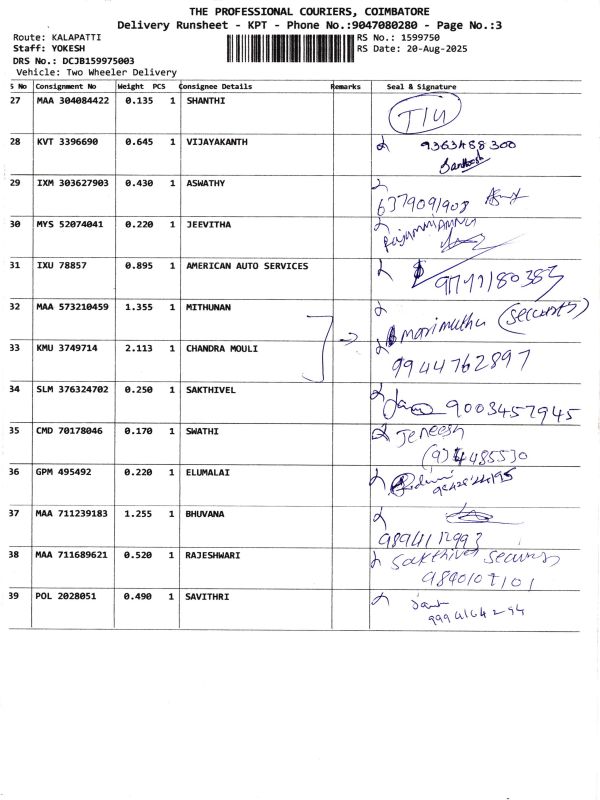 THE PROFESSIONAL COURIERS, COIMBATORE
Delivery Runsheet - KPT - Phone No.:9047080280 - Page No.:3
Route: KALAPATTI RS No.: 1599750
Staff: YOKESH RS Date: 20-Aug-2025
DRS No.: DCJB159975003
Vehicle: Two Wheeler Delivery
S No Consignment No Weight PCS Consignee Details Remarks Seal & Signature
27 MAA 304084422 0.135 1 SHANTHI
28 KVT 3396690 0.645 1 VIJAYAKANTH 9363488300
Santhosh
29 IXM 303627903 0.430 1 ASWATHY
6379091908
30 MYS 52074041 0.220 1 JEEVITHA
31 IXU 78857 0.895 1 AMERICAN AUTO SERVICES
32 MAA 573210459 1.355 1 MITHUNAN
marimuthu (security)
33 KMU 3749714 2.113 1 CHANDRA MOULI
9944762897
34 SLM 376324702 0.250 1 SAKTHIVEL
9003457945
35 CMD 70178046 0.170 1 SWATHI Jeneesh
36 GPM 495492 0.220 1 ELUMALAI
37 MAA 711239183 1.255 1 BHUVANA
9894112992
38 MAA 711689621 0.520 1 RAJESHWARI Sakthivel security
39 POL 2028051 0.490 1 SAVITHRI